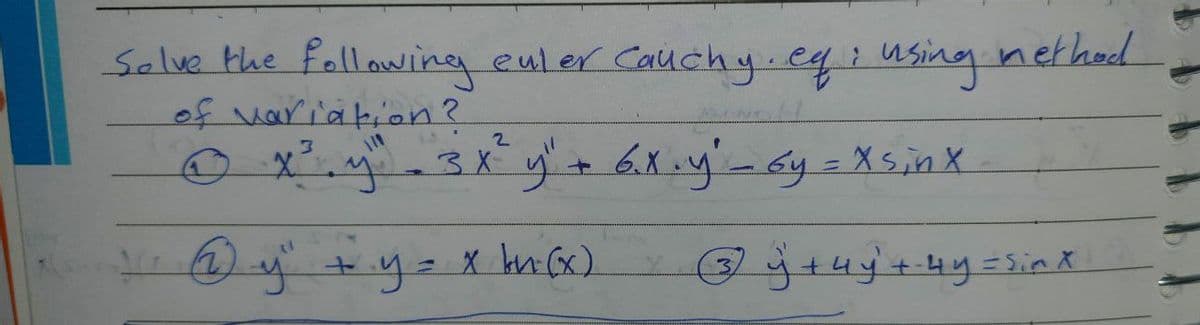 Solve the following euler Cauchy. eq: using nethod
of variation?
① x³.y''' - 3x² y'' + 6.x.y' - 6y = x sin x
② y'' + y = x ln(x) ③ ÿ + 4ẏ + 4y = sin x